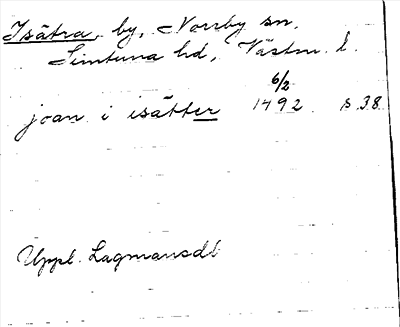 Isätra, by, Norrby sn.
Simtuna hd, Västm. l.
6/2
joan i isätter 1492. s. 38.
Uppl. Lagmansdb